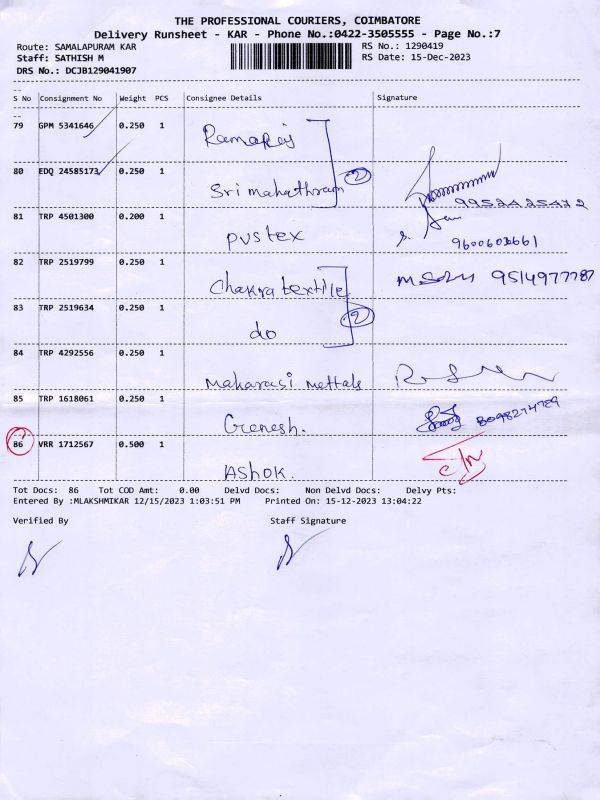 THE PROFESSIONAL COURIERS, COIMBATORE
Delivery Runsheet - KAR - Phone No.:0422-3505555 - Page No.:7
Route: SAMALAPURAM KAR RS No.: 1290419
Staff: SATHISH M RS Date: 15-Dec-2023
DRS No.: DCJB129041907
S No Consignment No Weight PCS Consignee Details Signature
79 GPM 5341646 0.250 1
Ramaraj
80 EDQ 24585173 0.250 1 2
Sri mahathram 9952425472
81 TRP 4501300 0.200 1
pvstex 9600603661
82 TRP 2519799 0.250 1
Chakra textile 9514977787
83 TRP 2519634 0.250 1 2
do
84 TRP 4292556 0.250 1
Maharasi mettals
85 TRP 1618061 0.250 1
Grenesh. 8098274789
86 VRR 1712567 0.500 1
ASHOK.
Tot Docs: 86 Tot COD Amt: 0.00 Delvd Docs: Non Delvd Docs: Delvy Pts:
Entered By :MLAKSHMIKAR 12/15/2023 1:03:51 PM Printed On: 15-12-2023 13:04:22
Verified By Staff Signature